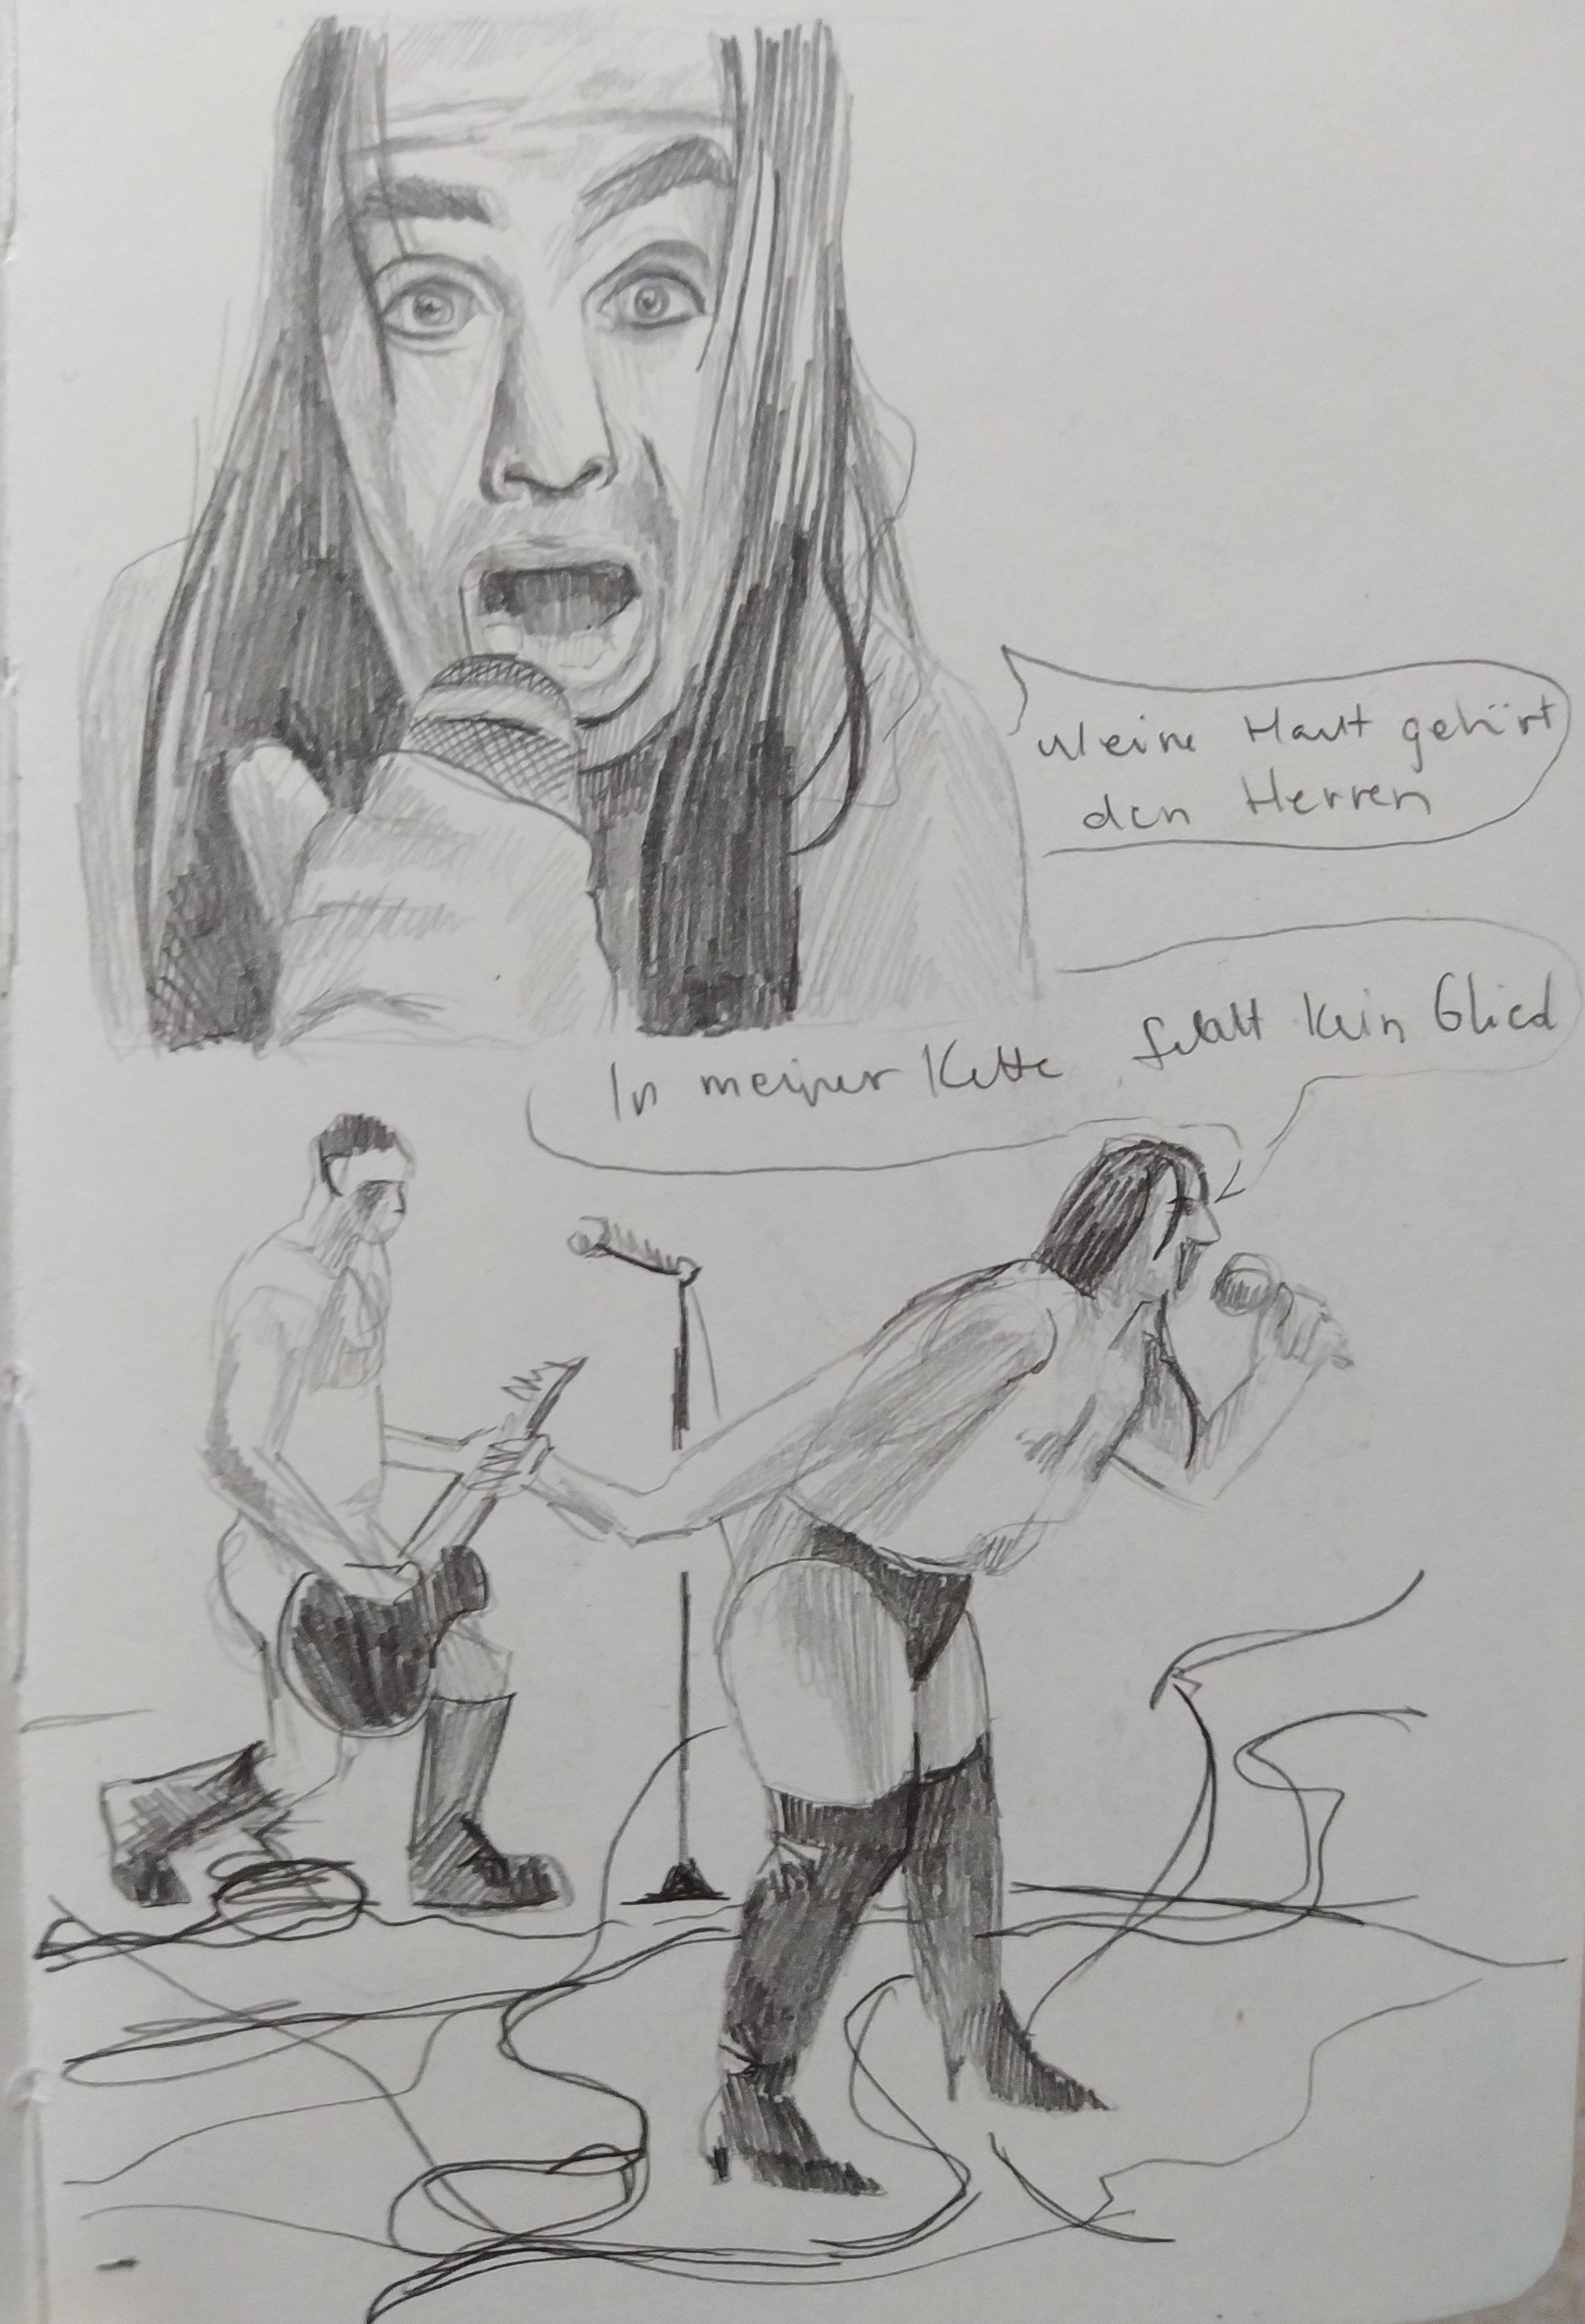 Meine Haut gehört
den Herren
In meiner Kette fehlt kein Glied